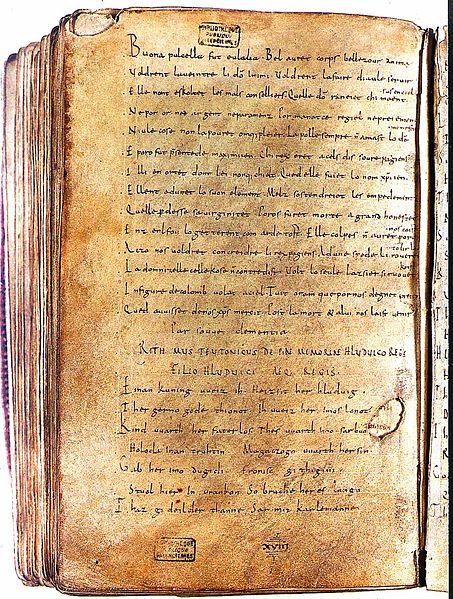 BIBLIOTHEQUE PUBLIQUE VALENCIENNES
Buona pulcella fut eulalia. Bel auret corps bellezour anima
Voldrent la ueintre li dõ Inimi. Voldrent la faire diaule seruir
sus en ciel
Elle nont eskoltet les mals conselliers. Quelle dõ raneiet chi maent
Ne por or ned argent ne paramenz. Por manatce regiel ne preiement
menestier
Niule cose non la pouret omq; pleier. La polle sempre ñ amast lo dõ
E por o fut p̃sentede maximiien. Chi rex eret a cels dis soure pagiens
Il li enortet dont lei nonq; chielt. Qued elle fuiet lo nom xp̃iien.
Ellent adunet lo suon element. Melz sostendreiet les empedementz
Quelle p̃desse sa uirginitet. Por os furet morte a grand honestet
nos coist
Enz enl fou la getterent com arde tost. Elle colpes ñ auret por o
tolir lo chief
A czo nos uoldret concreidre li rex pagiens. Ad une spede li roueret
krist
La domnizelle celle kose ñ contredist. Volt lo seule lazsier si ruouet
In figure de colomb uolat a ciel. Tuit oram que por nos degnet preier
Qued auuisset de nos xp̃s mercit. Post la mort & a lui nos laist uenir
Par souue clementia
RITHMUS TEUTONICUS DE PIAE MEMORIAE HLUDUICO REGE
FILIO HLUDUICI AEQ; REGIS.
Einan kuning uueiz ih. Heizsit her hluduig.
Ther gerno gode thionot. Ih uueiz her imos lonot
Kind uuarth her faterlos. Thes uuarth imo sar buoz
Holoda inan truhtin. Magaczogo uuarth her sin
Gab her imo dugidi. Fronisc githigini.
Stuol hier In urankon. So bruche her es lango
Thaz gideilder thanne. Sar mit karlemanne
BIBLIOTHEQUE PUBLIQUE VALENCIENNES
XVIII